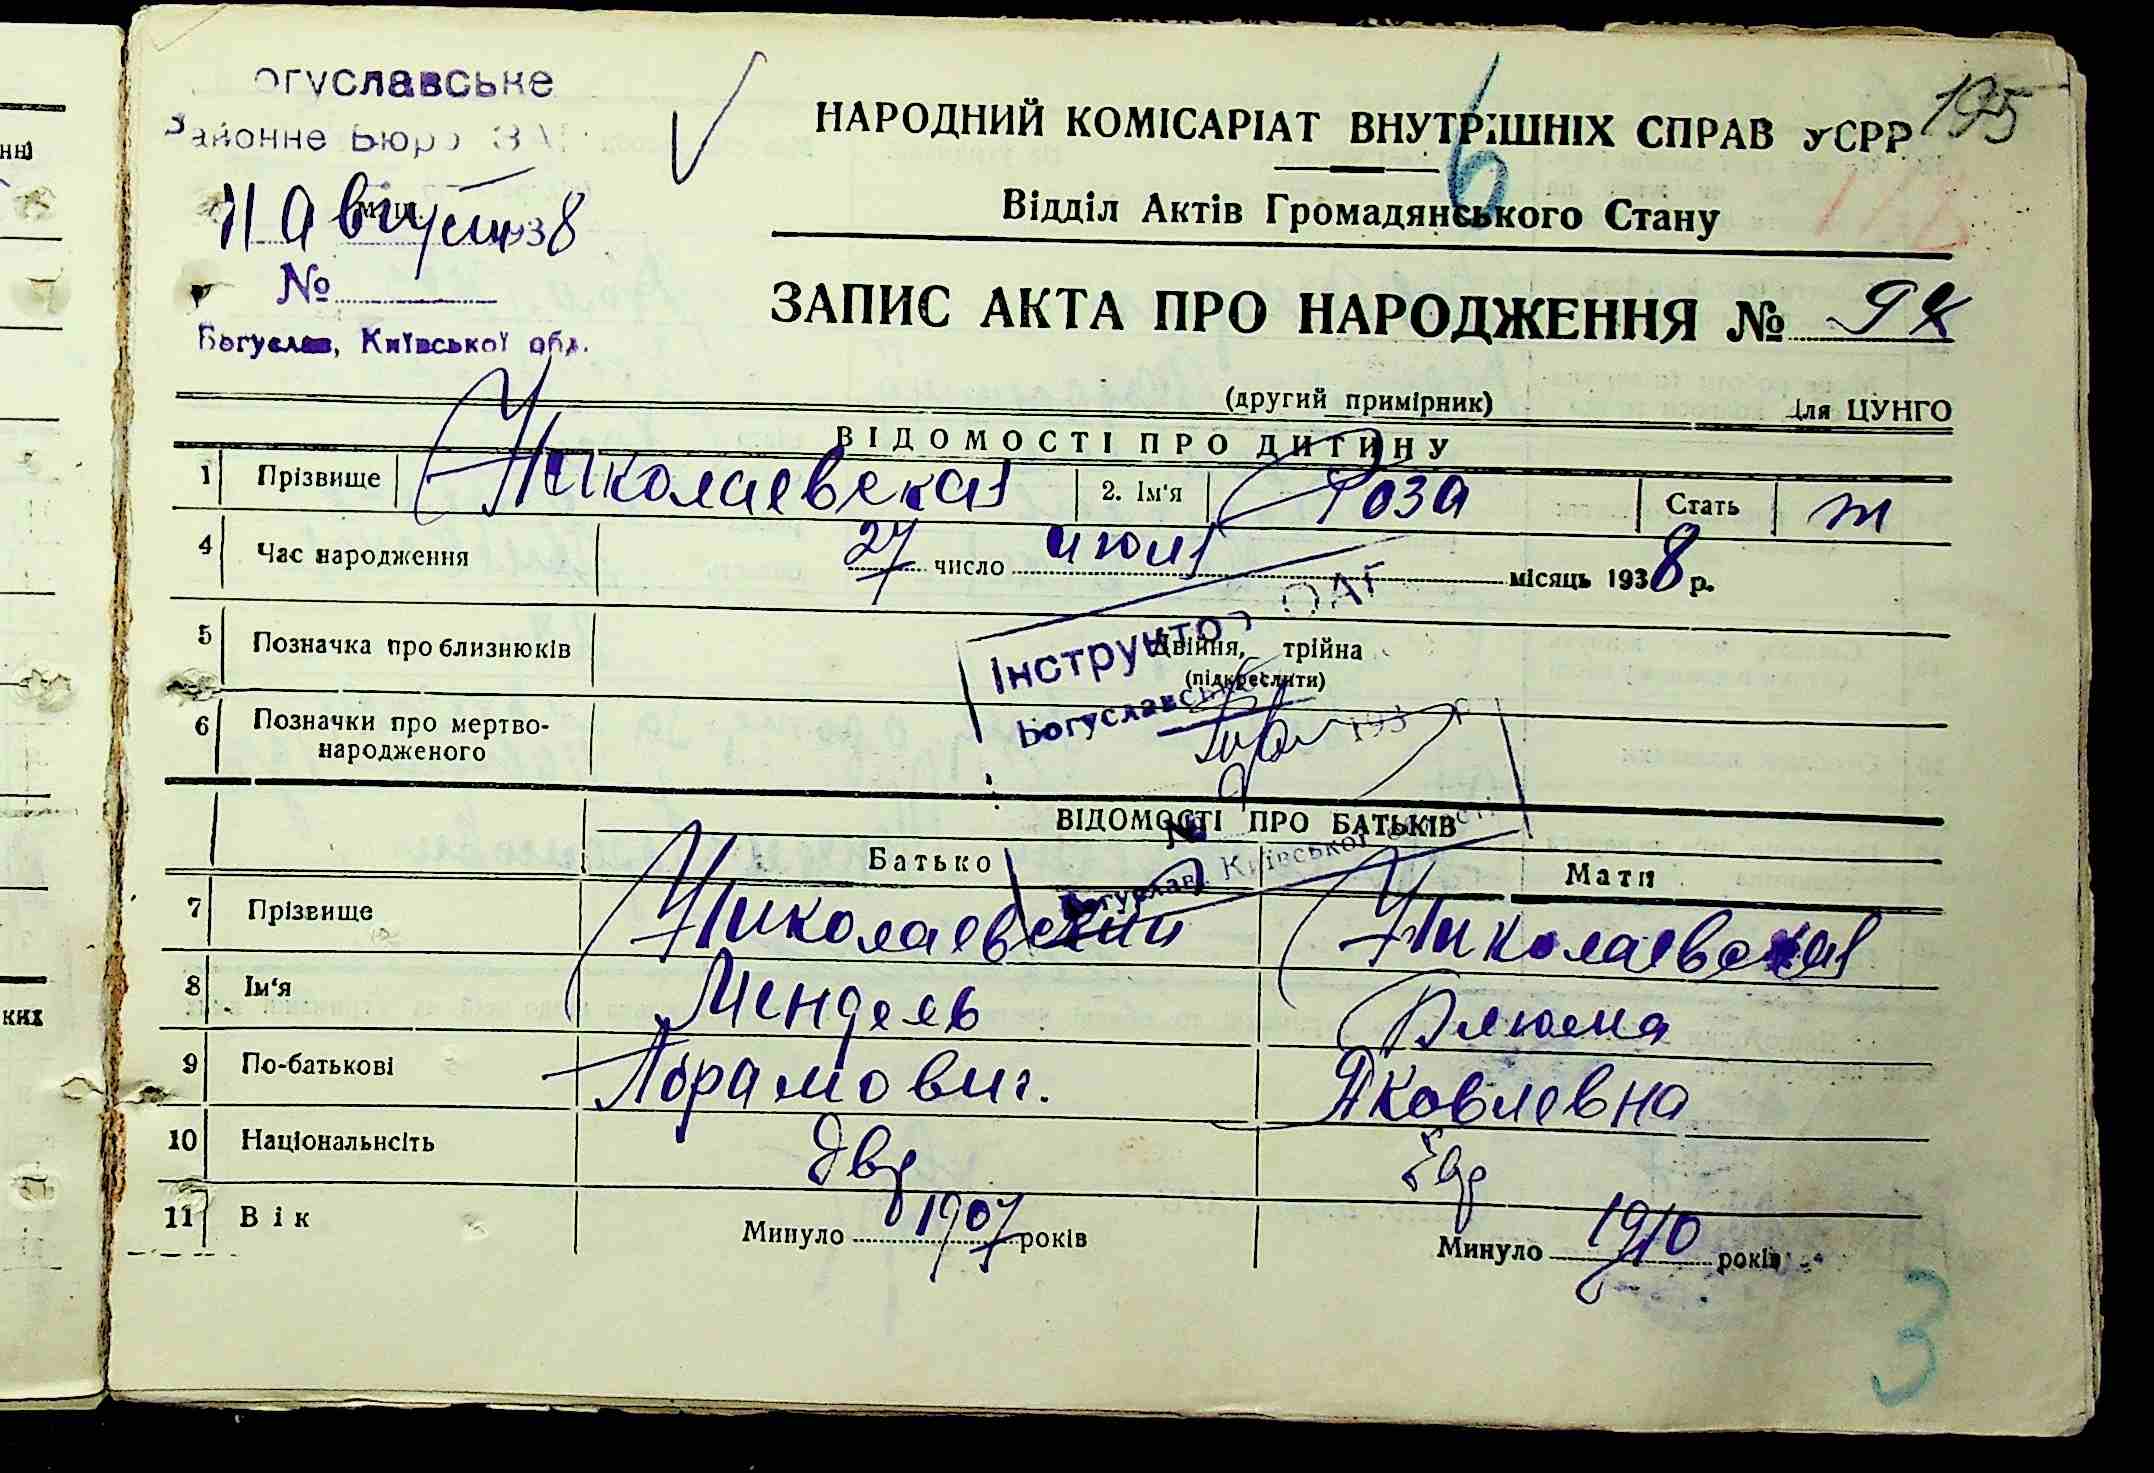 огуславське
Районне Бюро ЗАГ
11 Августа 1938
№
Богуслав, Київської обл.
195
НАРОДНИЙ КОМІСАРІАТ ВНУТРІШНІХ СПРАВ УСРР
6
Відділ Актів Громадянського Стану
ЗАПИС АКТА ПРО НАРОДЖЕННЯ №
(другий примірник) Для ЦУНГО
ВІДОМОСТІ ПРО ДИТИНУ
1 Прізвище Николаевская 2. Ім'я Роза Стать ж
4 Час народження 27 число июля місяць 1938 р.
5 Позначка про близнюків Двійня, трійна
(підкреслити)
Інструктор ЗАГ
Богуславськ
193 р
№
Богуслав, Київської області
6 Позначки про мертво-
народженого
ВІДОМОСТІ ПРО БАТЬКІВ
Батько Мати
7 Прізвище Николаевский Николаевская
8 Ім'я Мендель Блюма
9 По-батькові Абрамович. Яковлевна
10 Національнсіть Евр Евр
11 Вік Минуло 1907 років Минуло 1910 років
3
ких